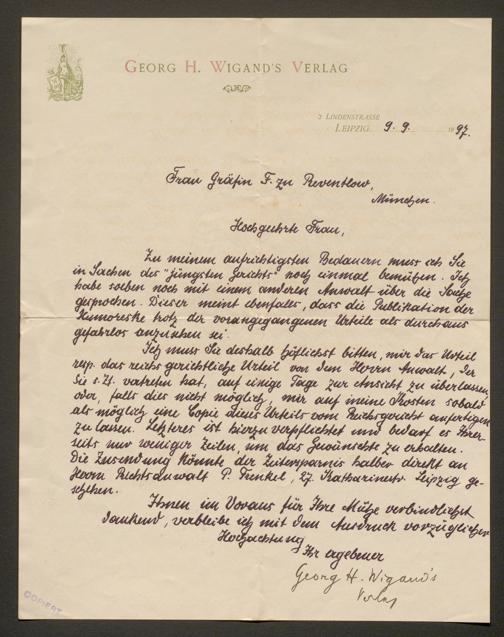 GEORG H. WIGAND'S VERLAG
2 LINDENSTRASSE
LEIPZIG, 9. 9. 1897.
Frau Gräfin F. zu Reventlow,
München.
Hochgeehrte Frau,
Zu meinem aufrichtigsten Bedauern muss ich Sie
in Sachen des "jüngsten Gerichts" noch einmal bemühen. Ich
habe soeben noch mit einem anderen Anwalt über die Sache
gesprochen. Dieser meint ebenfalls, dass die Publikation der
Humoreske trotz der vorangegangenen Urteile als durchaus
gefahrlos anzusehen sei.
Ich muss Sie deshalb höflichst bitten, mir das Urteil
resp. das reichsgerichtliche Urteil von dem Herrn Anwalt, der
Sie s. Zt. vertreten hat, auf einige Tage zur Ansicht zu überlassen,
oder, falls dies nicht möglich, mir auf meine Kosten sobald
als möglich eine Copie dieses Urteils vom Reichsgericht anfertigen
zu lassen. Letzteres ist hierzu verpflichtet und bedarf es Ihrer-
seits nur weniger Zeilen, um das Gewünschte zu erhalten.
Die Zusendung könnte der Zeitersparnis halber direkt an
Herrn Rechtsanwalt P. Frenkel, 27. Katharinenstr. Leipzig ge-
schehen.
Ihnen im Voraus für Ihre Mühe verbindlichst
dankend, verbleibe ich mit dem Ausdruck vorzüglicher
Hochachtung
Ihr ergebener
Georg H. Wigand's
Verlag
COPIERT